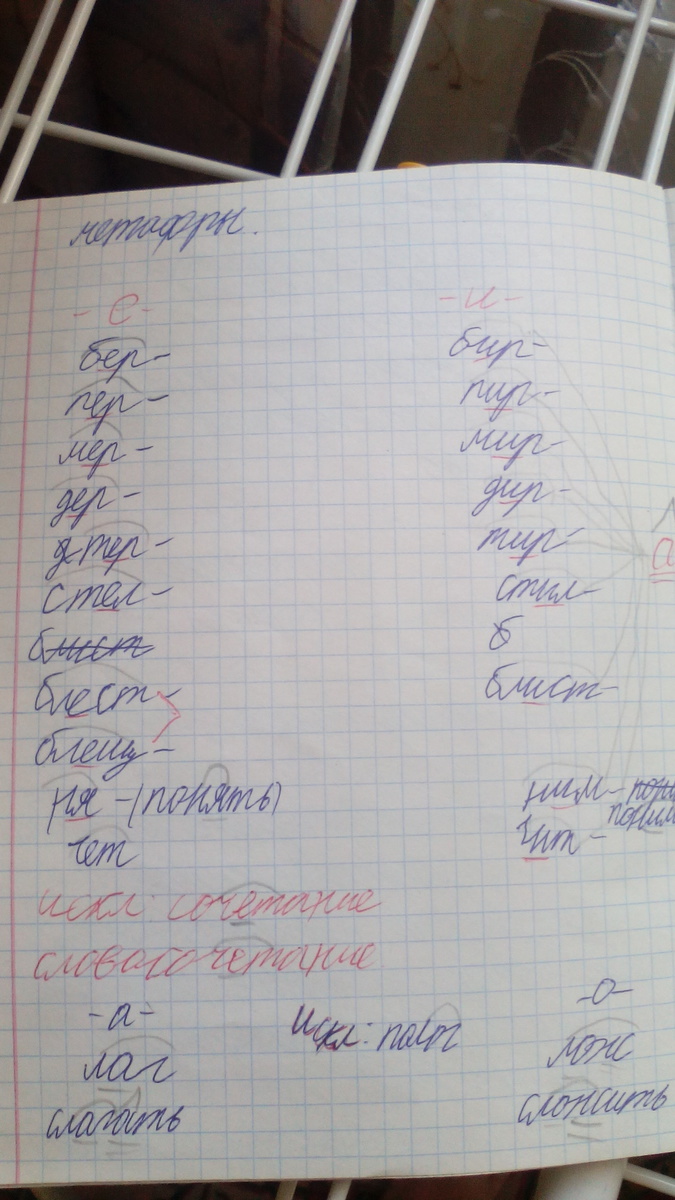 метафоры.
-е- -и-
бер- бир-
пер- пир-
мер- мир-
дер- дир-
тер- тир-
стел- стил-
блист б
блест- блист-
блещ-
ня -(понять) ним-
чет чит-
а
искл: сочетание
словасочетание
-а- Искл: полог -о-
лаг лож
слагать сложить